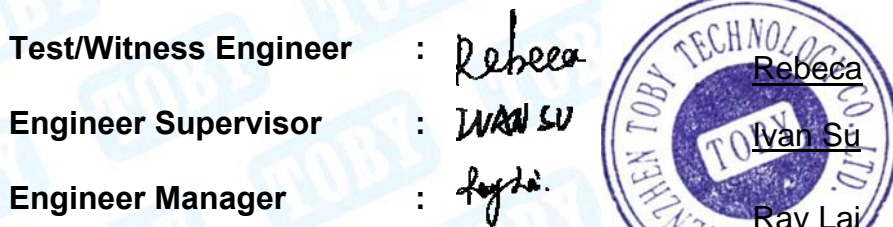 Test/Witness Engineer : Rebeca Rebeca
Engineer Supervisor : IVAN SU Ivan Su
Engineer Manager : Ray Lai. Ray Lai
SHENZHEN TOBY TECHNOLOGY CO., LTD.
TOBY